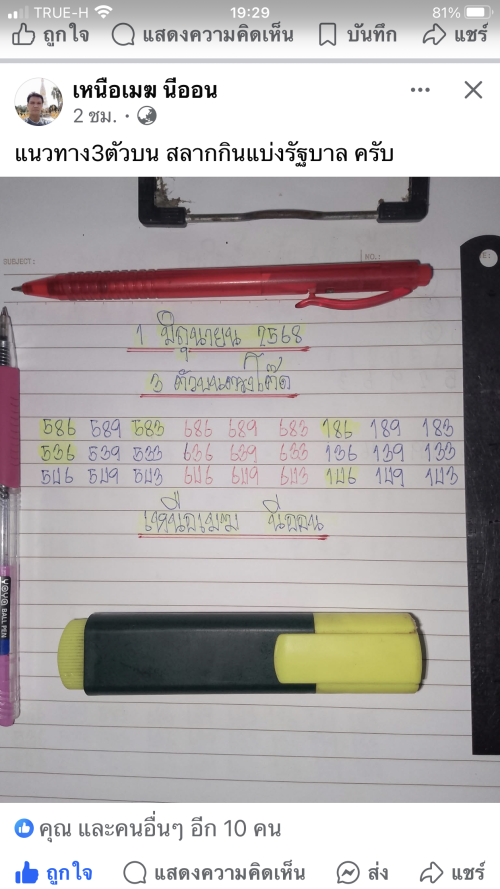 TRUE-H 19:29 81%
ถูกใจ แสดงความคิดเห็น บันทึก แชร์
เหนือเมฆ นีออน
2 ชม.
แนวทาง3ตัวบน สลากกินแบ่งรัฐบาล ครับ
SUBJECT: NO.:
1 มิถุนายน 2568
3 ตัวบนตรงโต๊ด
586 589 583 686 689 683 186 189 183
536 539 533 636 639 633 136 139 133
546 549 543 646 649 643 146 149 143
เหนือเมฆ นีออน
YOYO BALL PEN
คุณ และคนอื่นๆ อีก 10 คน
ถูกใจ แสดงความคิดเห็น ส่ง แชร์